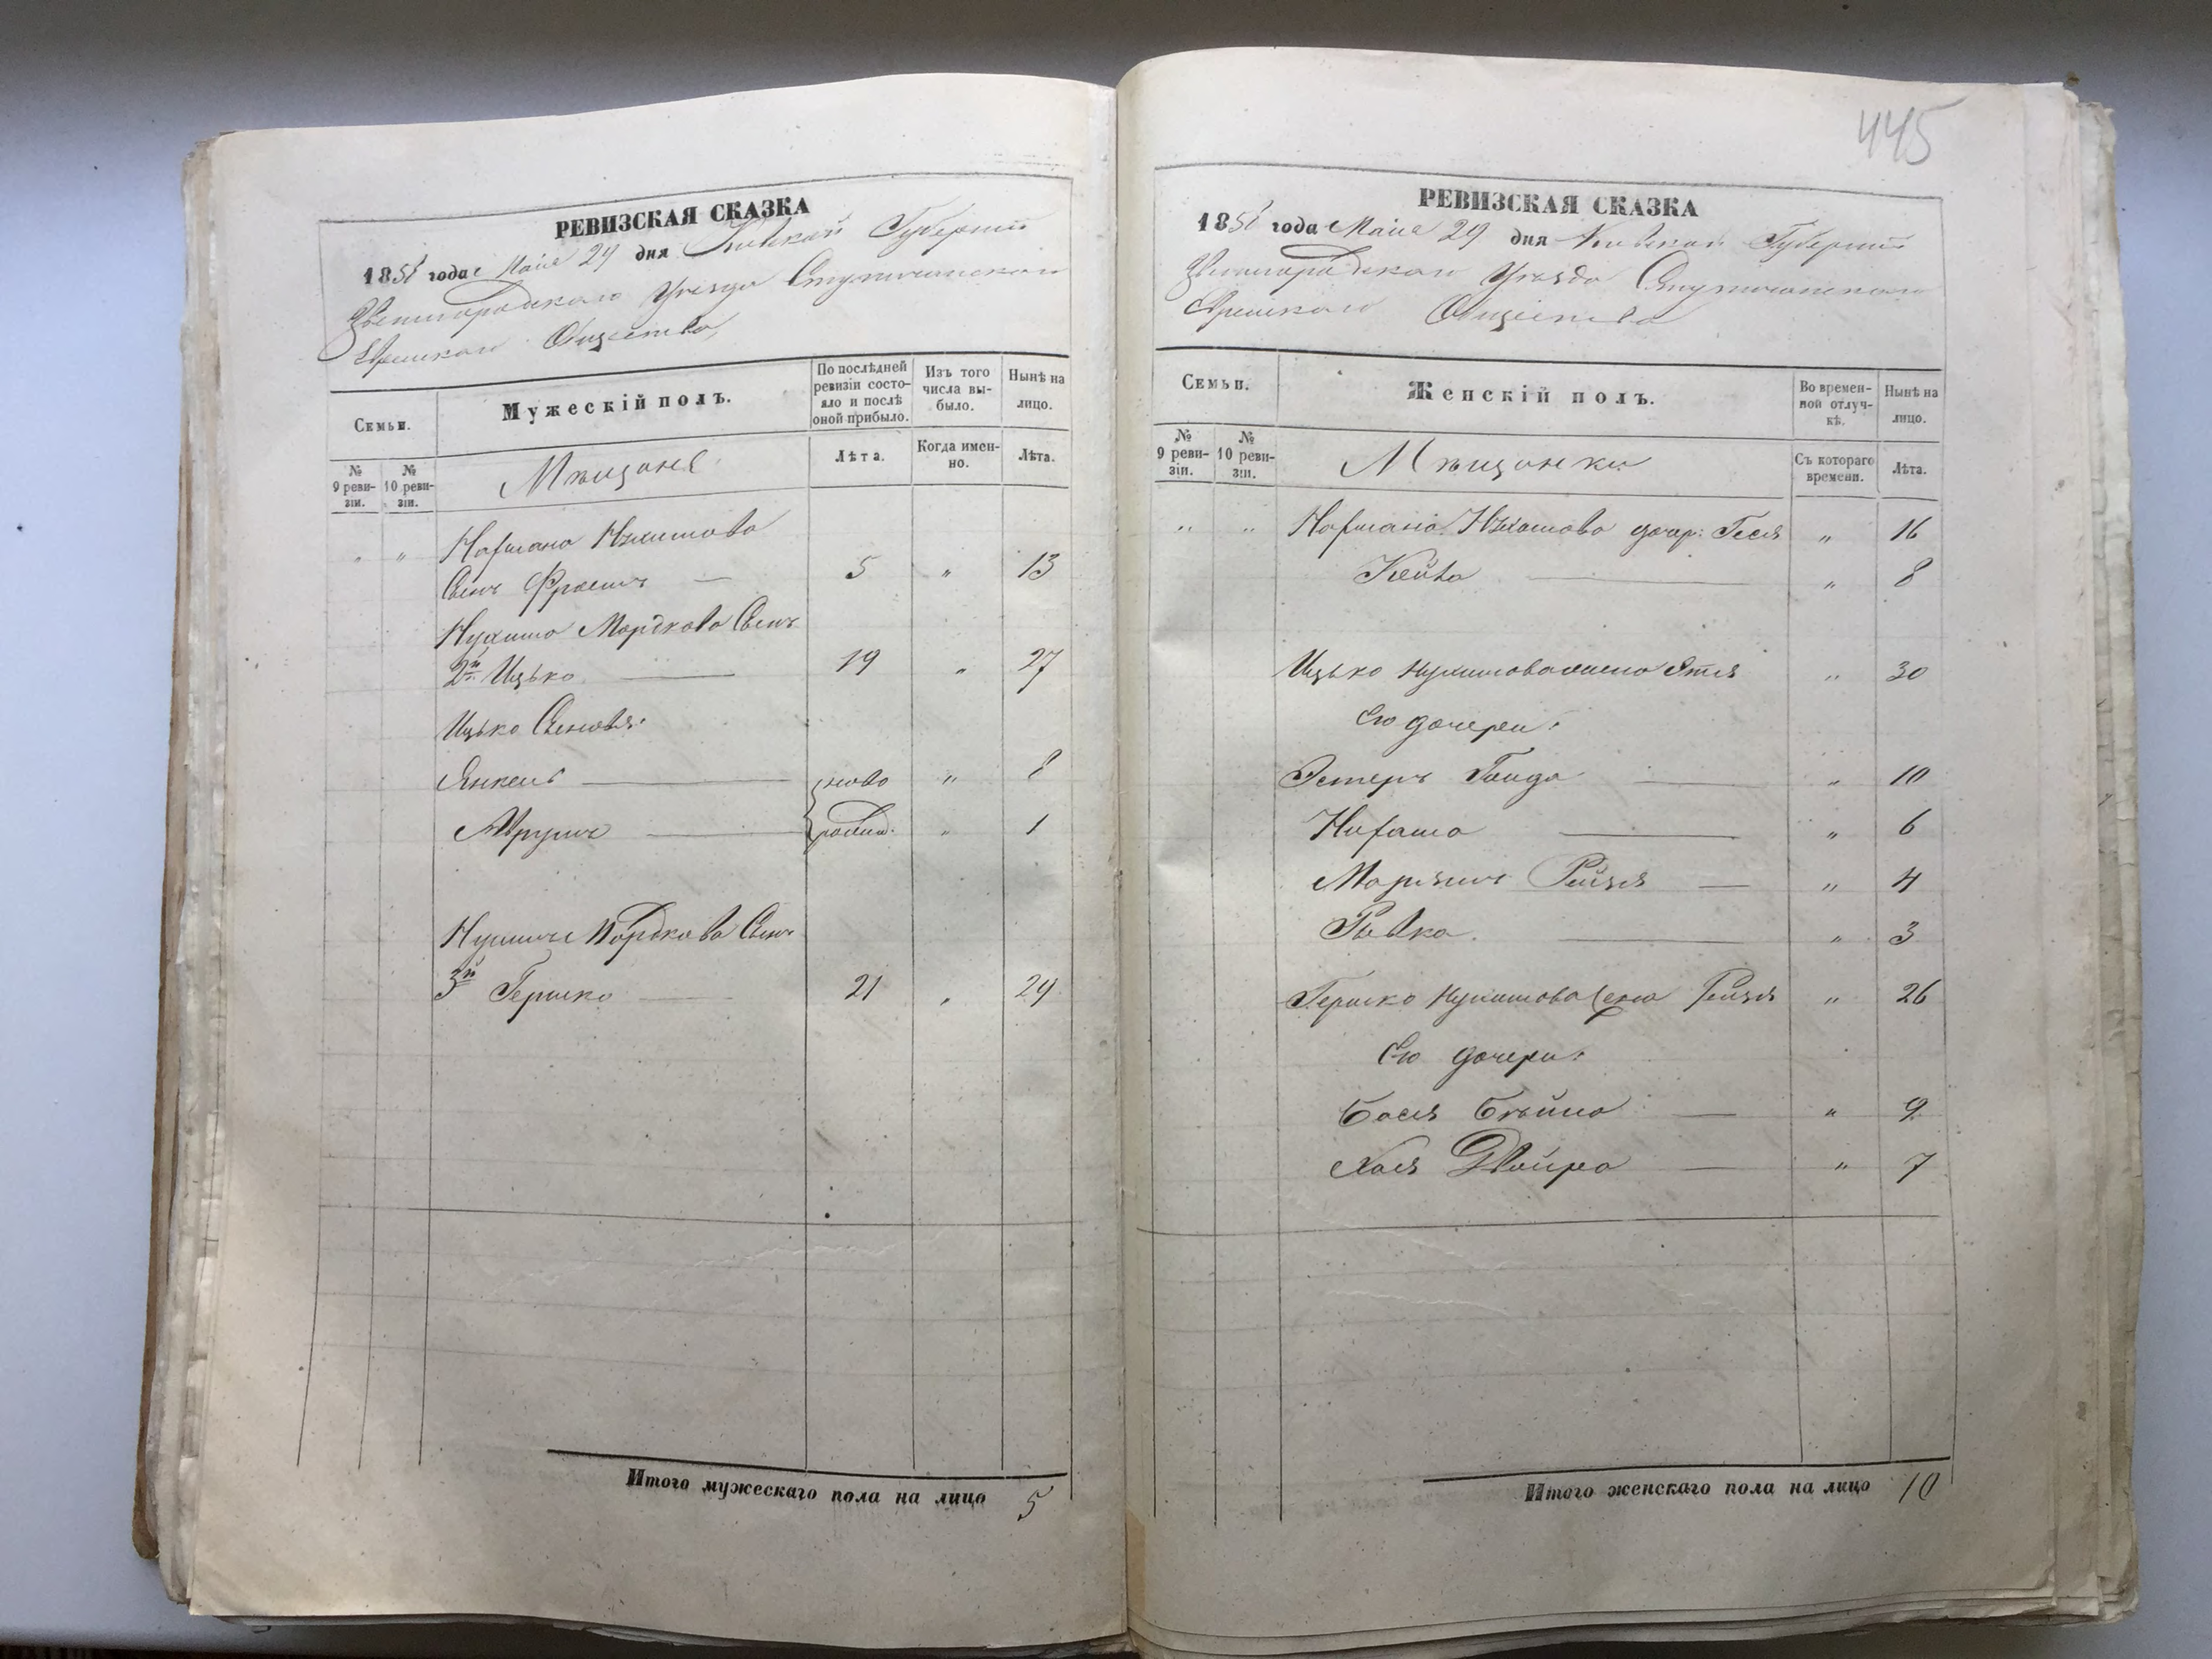 РЕВИЗСКАЯ СКАЗКА
1858 года Маiя 29 дня Кіевской Губерніи
Звенигородскаго Уѣзда
Еврейскаго Общества,
Семьи.
Мужескій полъ.
По послѣдней ревизіи состояло и послѣ оной прибыло.
Изъ того числа выбыло.
Нынѣ на лицо.
№ 9 ревизіи.
№ 10 ревизіи.
Мѣщане
Лѣта.
Когда именно.
Лѣта.
" "
Сынъ Фроимъ — 5 " 13
Нухима Мордкова Сынъ
2й Ицько — 19 " 27
Ицько Сыновья:
Янкель — ново " 8
— рожд. " 1
Мордкова Сынъ
3й Гершко — 21 " 29
Итого мужескаго пола на лицо 5
445
РЕВИЗСКАЯ СКАЗКА
1858 года Маiя 29 дня Кіевской Губерніи
Звенигородскаго Уѣзда
Еврейскаго Общества
Семьи.
Женскій полъ.
Во временной отлучкѣ.
Нынѣ на лицо.
№ 9 ревизіи.
№ 10 ревизіи.
Мѣщанки
Съ котораго времени.
Лѣта.
" " дочер: Геся " 16
Кейла — " 8
Ицько Нухимова жена " 30
Его дочери:
Эстеръ — " 10
— " 6
Рейзя — " 4
Рывка — " 3
Гершко Нухимова жена Рейзя " 26
Его дочери:
Бася Бейла — " 9
Хая Двойра — " 7
Итого женскаго пола на лицо 10